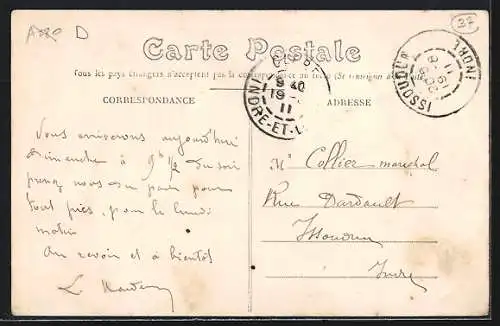 D
37
Carte Postale
Tous les pays étrangers n'acceptent pas la correspondance au recto (Se renseigner à la Poste)
CORRESPONDANCE
ADRESSE
INDRE-ET-L
ISSOUDUN
INDRE
Vous arriverons aujourd'hui
dimanche à 9h 1/2 du soir
prenez nous du pain pour
tout près, pour le lundi
matin
Au revoir et à bientôt
L.
Mr Collier maréchal
Rue Dardault
Issoudun
Indre